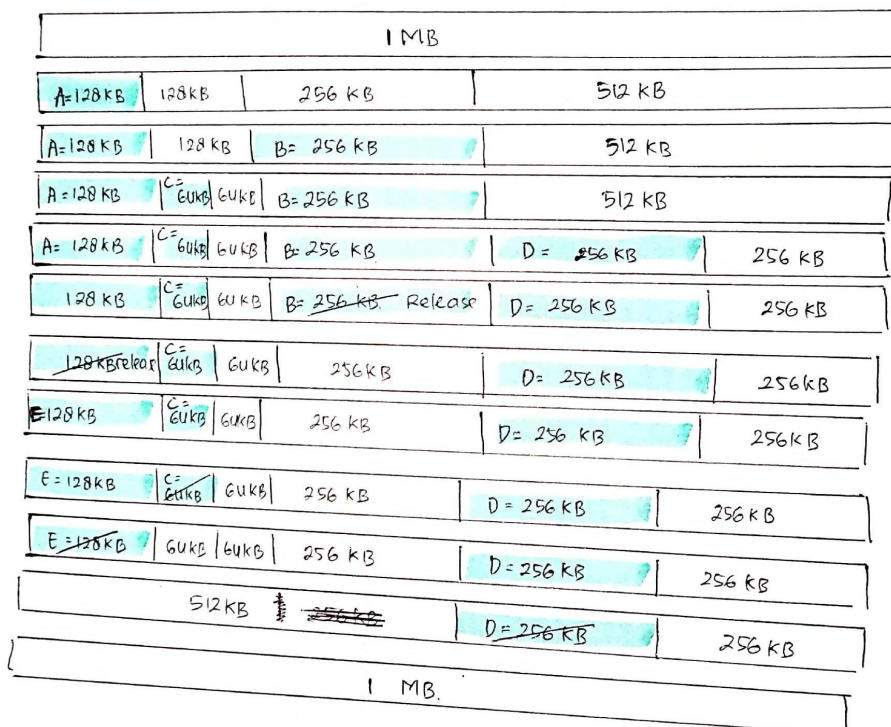 1 MB
A=128KB 128KB 256 KB 512 KB
A=128KB 128 KB B= 256 KB 512 KB
A=128KB C= 64KB 64KB B=256 KB 512 KB
A= 128KB C= 64KB 64KB B=256 KB D= 256 KB 256 KB
128 KB C= 64KB 64KB B= 256 KB. Release D= 256 KB 256 KB
128KB releas C= 64KB 64KB 256KB D= 256 KB 256KB
E=128KB C= 64KB 64KB 256 KB D= 256 KB 256KB
E=128KB C= 64KB 64KB 256 KB D= 256 KB 256 KB
E=128KB 64KB 64KB 256 KB D= 256 KB 256 KB
512KB 256 KB D= 256 KB 256 KB
1 MB.